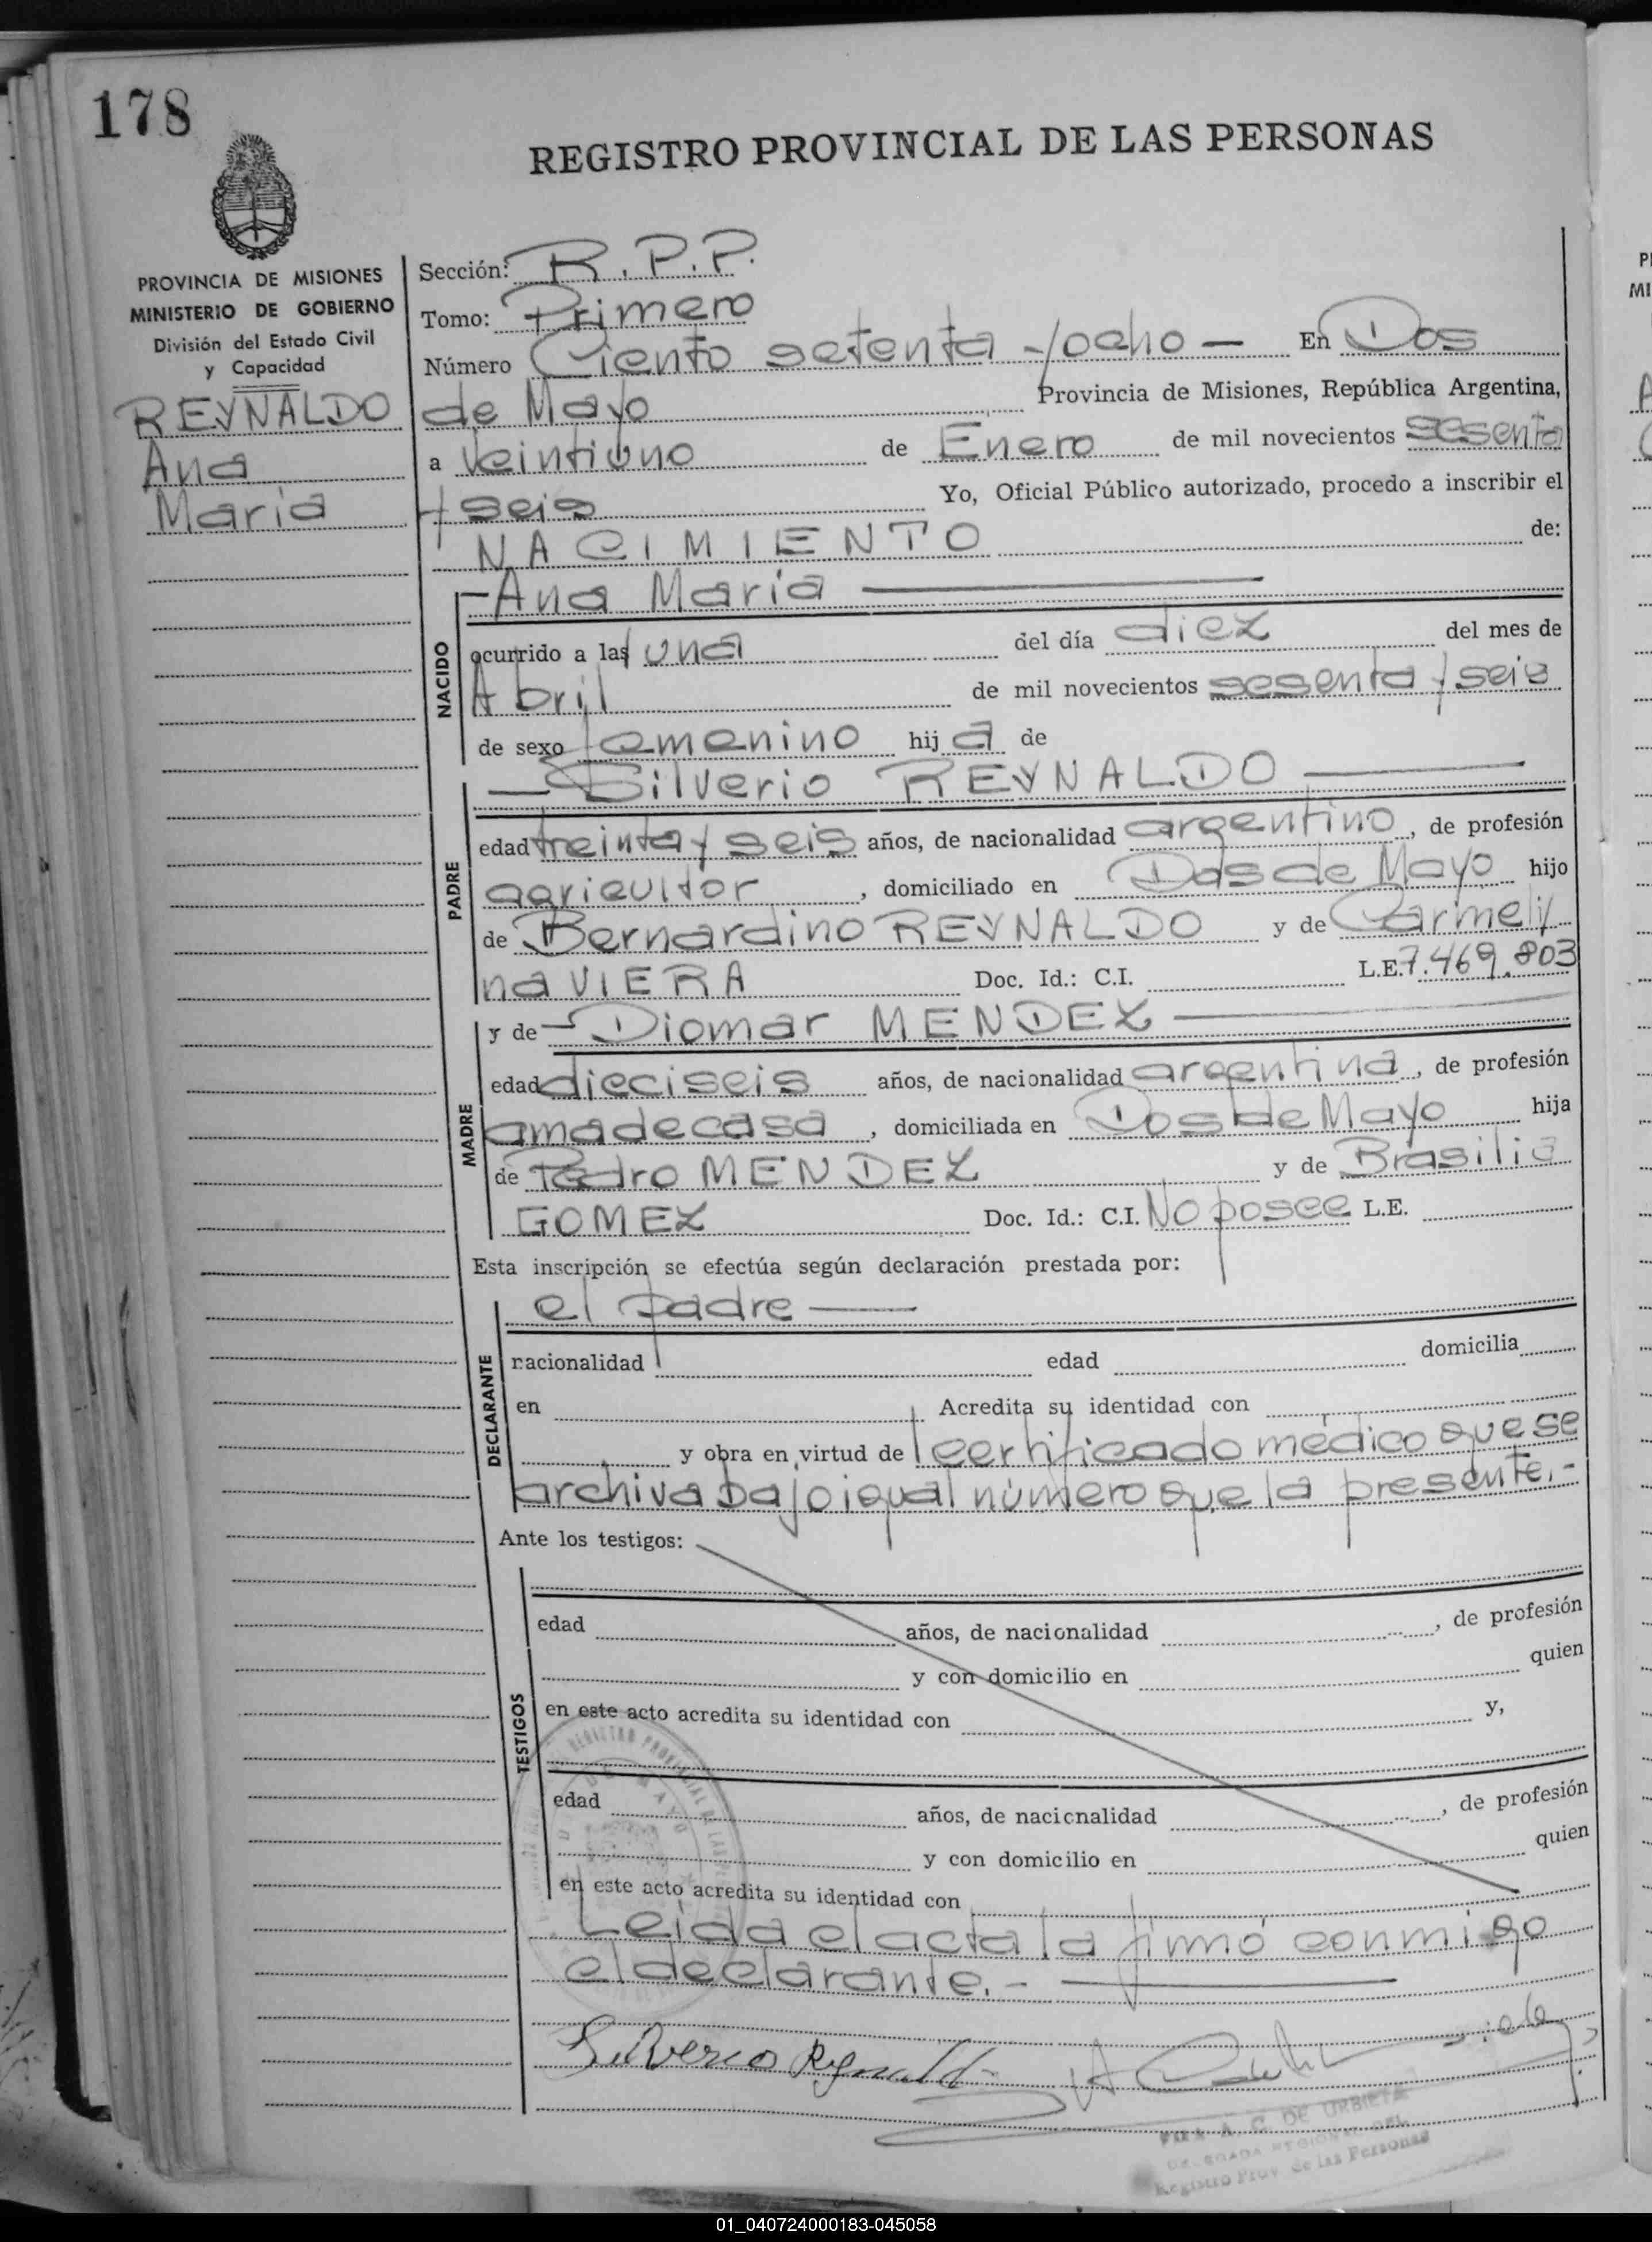 178
REGISTRO PROVINCIAL DE LAS PERSONAS
PROVINCIA DE MISIONES
MINISTERIO DE GOBIERNO
División del Estado Civil
y Capacidad
REYNALDO
Ana
Maria
Sección: R.P.P.
Tomo: Primero
Número Ciento setenta y ocho — En Dos
de Mayo Provincia de Misiones, República Argentina,
a veintiuno de Enero de mil novecientos sesenta
y seis Yo, Oficial Público autorizado, procedo a inscribir el
NACIMIENTO de:
NACIDO
— Ana Maria —
ocurrido a las una del día diez del mes de
Abril de mil novecientos sesenta y seis
de sexo femenino hija de
PADRE
— Silverio REYNALDO —
edad treinta y seis años, de nacionalidad argentino, de profesión
agricultor, domiciliado en Dos de Mayo hijo
de Bernardino REYNALDO y de Carmeli
na VIERA Doc. Id.: C.I. L.E. 7.469.803
MADRE
y de — Diomar MENDEZ —
edad dieciseis años, de nacionalidad argentina, de profesión
ama de casa, domiciliada en Dos de Mayo hija
de Pedro MENDEZ y de Brasilia
GOMEZ Doc. Id.: C.I. No posee L.E.
Esta inscripción se efectúa según declaración prestada por:
DECLARANTE
el padre —
nacionalidad edad domicilia
en Acredita su identidad con
y obra en virtud de certificado médico que se
archiva bajo igual número que la presente.-
Ante los testigos:
TESTIGOS
edad años, de nacionalidad , de profesión
y con domicilio en quien
en este acto acredita su identidad con y,
edad años, de nacionalidad , de profesión
y con domicilio en quien
en este acto acredita su identidad con
Leida el acta la firmó conmigo
el declarante.- —
Silverio Reynaldo
A C DE URBIETA
Registro Prov. de las Personas
01_040724000183-045058